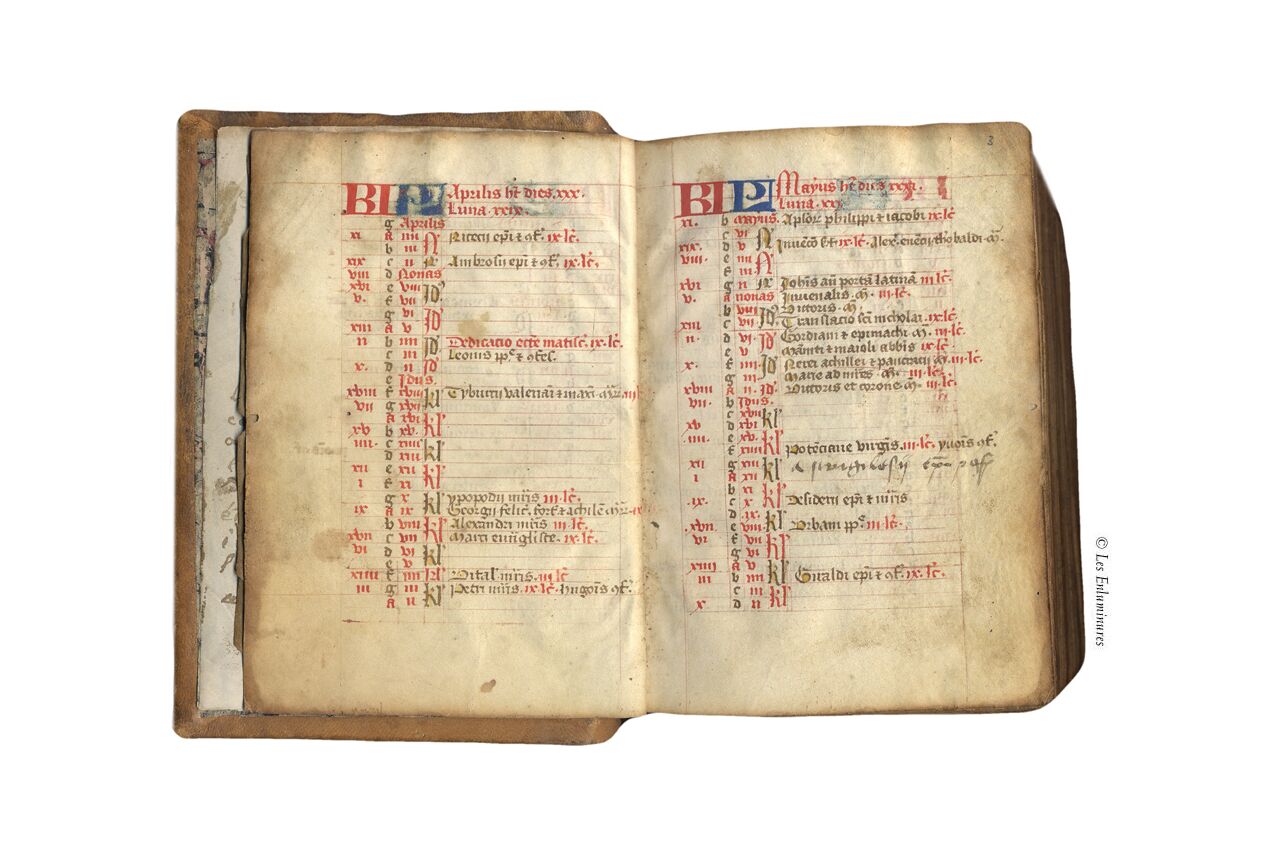 KL Aprilis ht dies .xxx.
Luna .xxix.
g Aprilis
xi A iiii N Nicecii epi ⁊ ɔf. ix. lc.
b iii
xix c ii N Ambrosii epi ⁊ ɔf. ix. lc.
viii d Nonas
xvi e viii Id
v. f vii
g vi Id
xiii A v
ii b iiii Id Dedicacio eccte matisc. ix. lc.
c iii Leonis pp ⁊ ɔfes.
x. d ii Id
e Idus.
xviii f xviii kl Tyburcii valeriani ⁊ maxi
vii g xvii
A xvi kl
xv b xv.
iiii. c xiiii kl
d xiii
xii e xii kl
i f xi
g x kl ypopodii mris iii lc.
ix A ix Georgii felic. fort. ⁊ achile
b viii kl Alexandri mris iii lc.
xvii c vii Marci evvgliste. ix. lc.
vi d vi kl
e v
xiiii f iiii kl Vital. mris. iii lc
iii g iii kl Petri mris. ix. lc. hugois ɔf.
A ii
3
KL Mayus ht dies xxxi.
Luna .xxx
xi. b mayus. Aplor philippi ⁊ iacobi ix. lc
c vi N
xix. d v Invecio ix. lc. Alex. evenci theobaldi m.
viii. e iiii N
f iii
xvi g ii N Johis an porta latina iii lc.
v. A nonas Juvenalis. m. iii. lc.
b viii Id Victoris. m.
xiii c vii Translacio sci nicholai. ix. lc.
ii. d vi Id Gordiani ⁊ epimachi m. iii. lc.
e v Mamti ⁊ maioli abbis ix. lc.
x. f iiii Id Nerei achillei ⁊ pancracii m. iii. lc.
g iii Marie ad mres m. iii. lc.
xviii A ii Id. Victoris et corone m. iii. lc.
vii. b Idus.
c xvii kl
xv d xvi
iiii. e xv. kl
f xiiii Potenciane virgis. iii. lc. yvois ɔf.
xii g xiii kl
i A xii
b xi kl
ix. c x Desiderii epi ⁊ mris
d ix. kl
xvii. e viii Urbani pp iii. lc.
vi f vii kl
g vi
xiiii A v kl
iii b iiii Gualdi epi ⁊ ɔf. ix. lc.
c iii kl
x d ii
© Les Enluminures